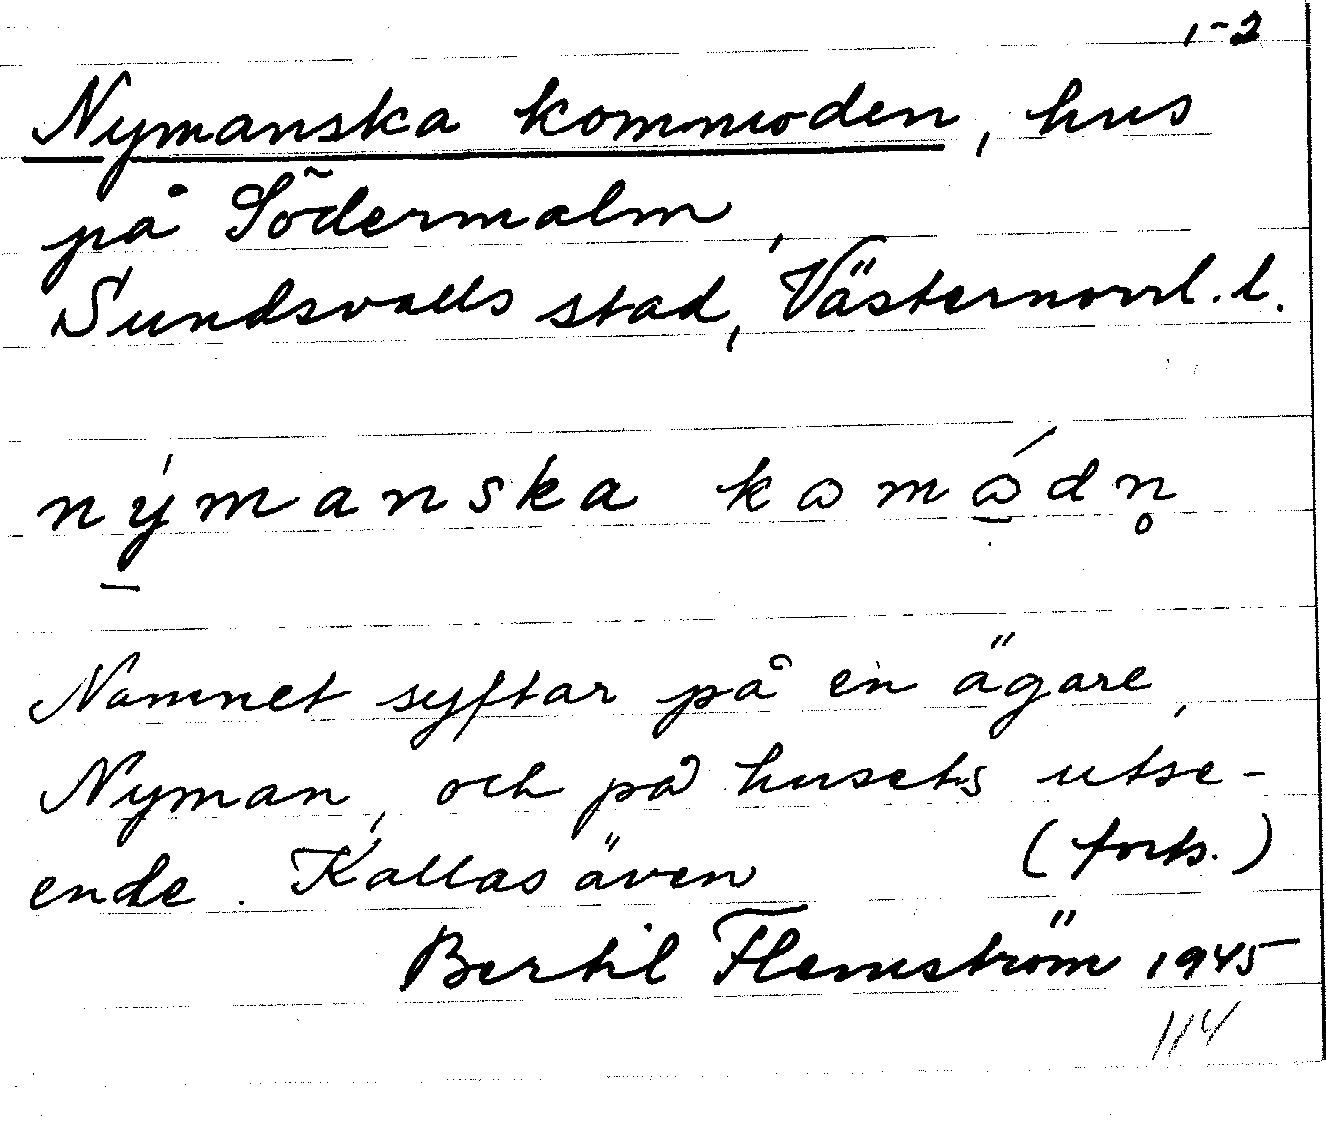 1-2
Nymanska kommoden, hus
på Södermalm,
Sundsvalls stad, Västernorrl. l.
nýmanska kɷmɷ́dn̥
Namnet syftar på en ägare,
Nyman, och på husets utse-
ende. Kallas även (forts.)
Bertil Flemström 1945
114